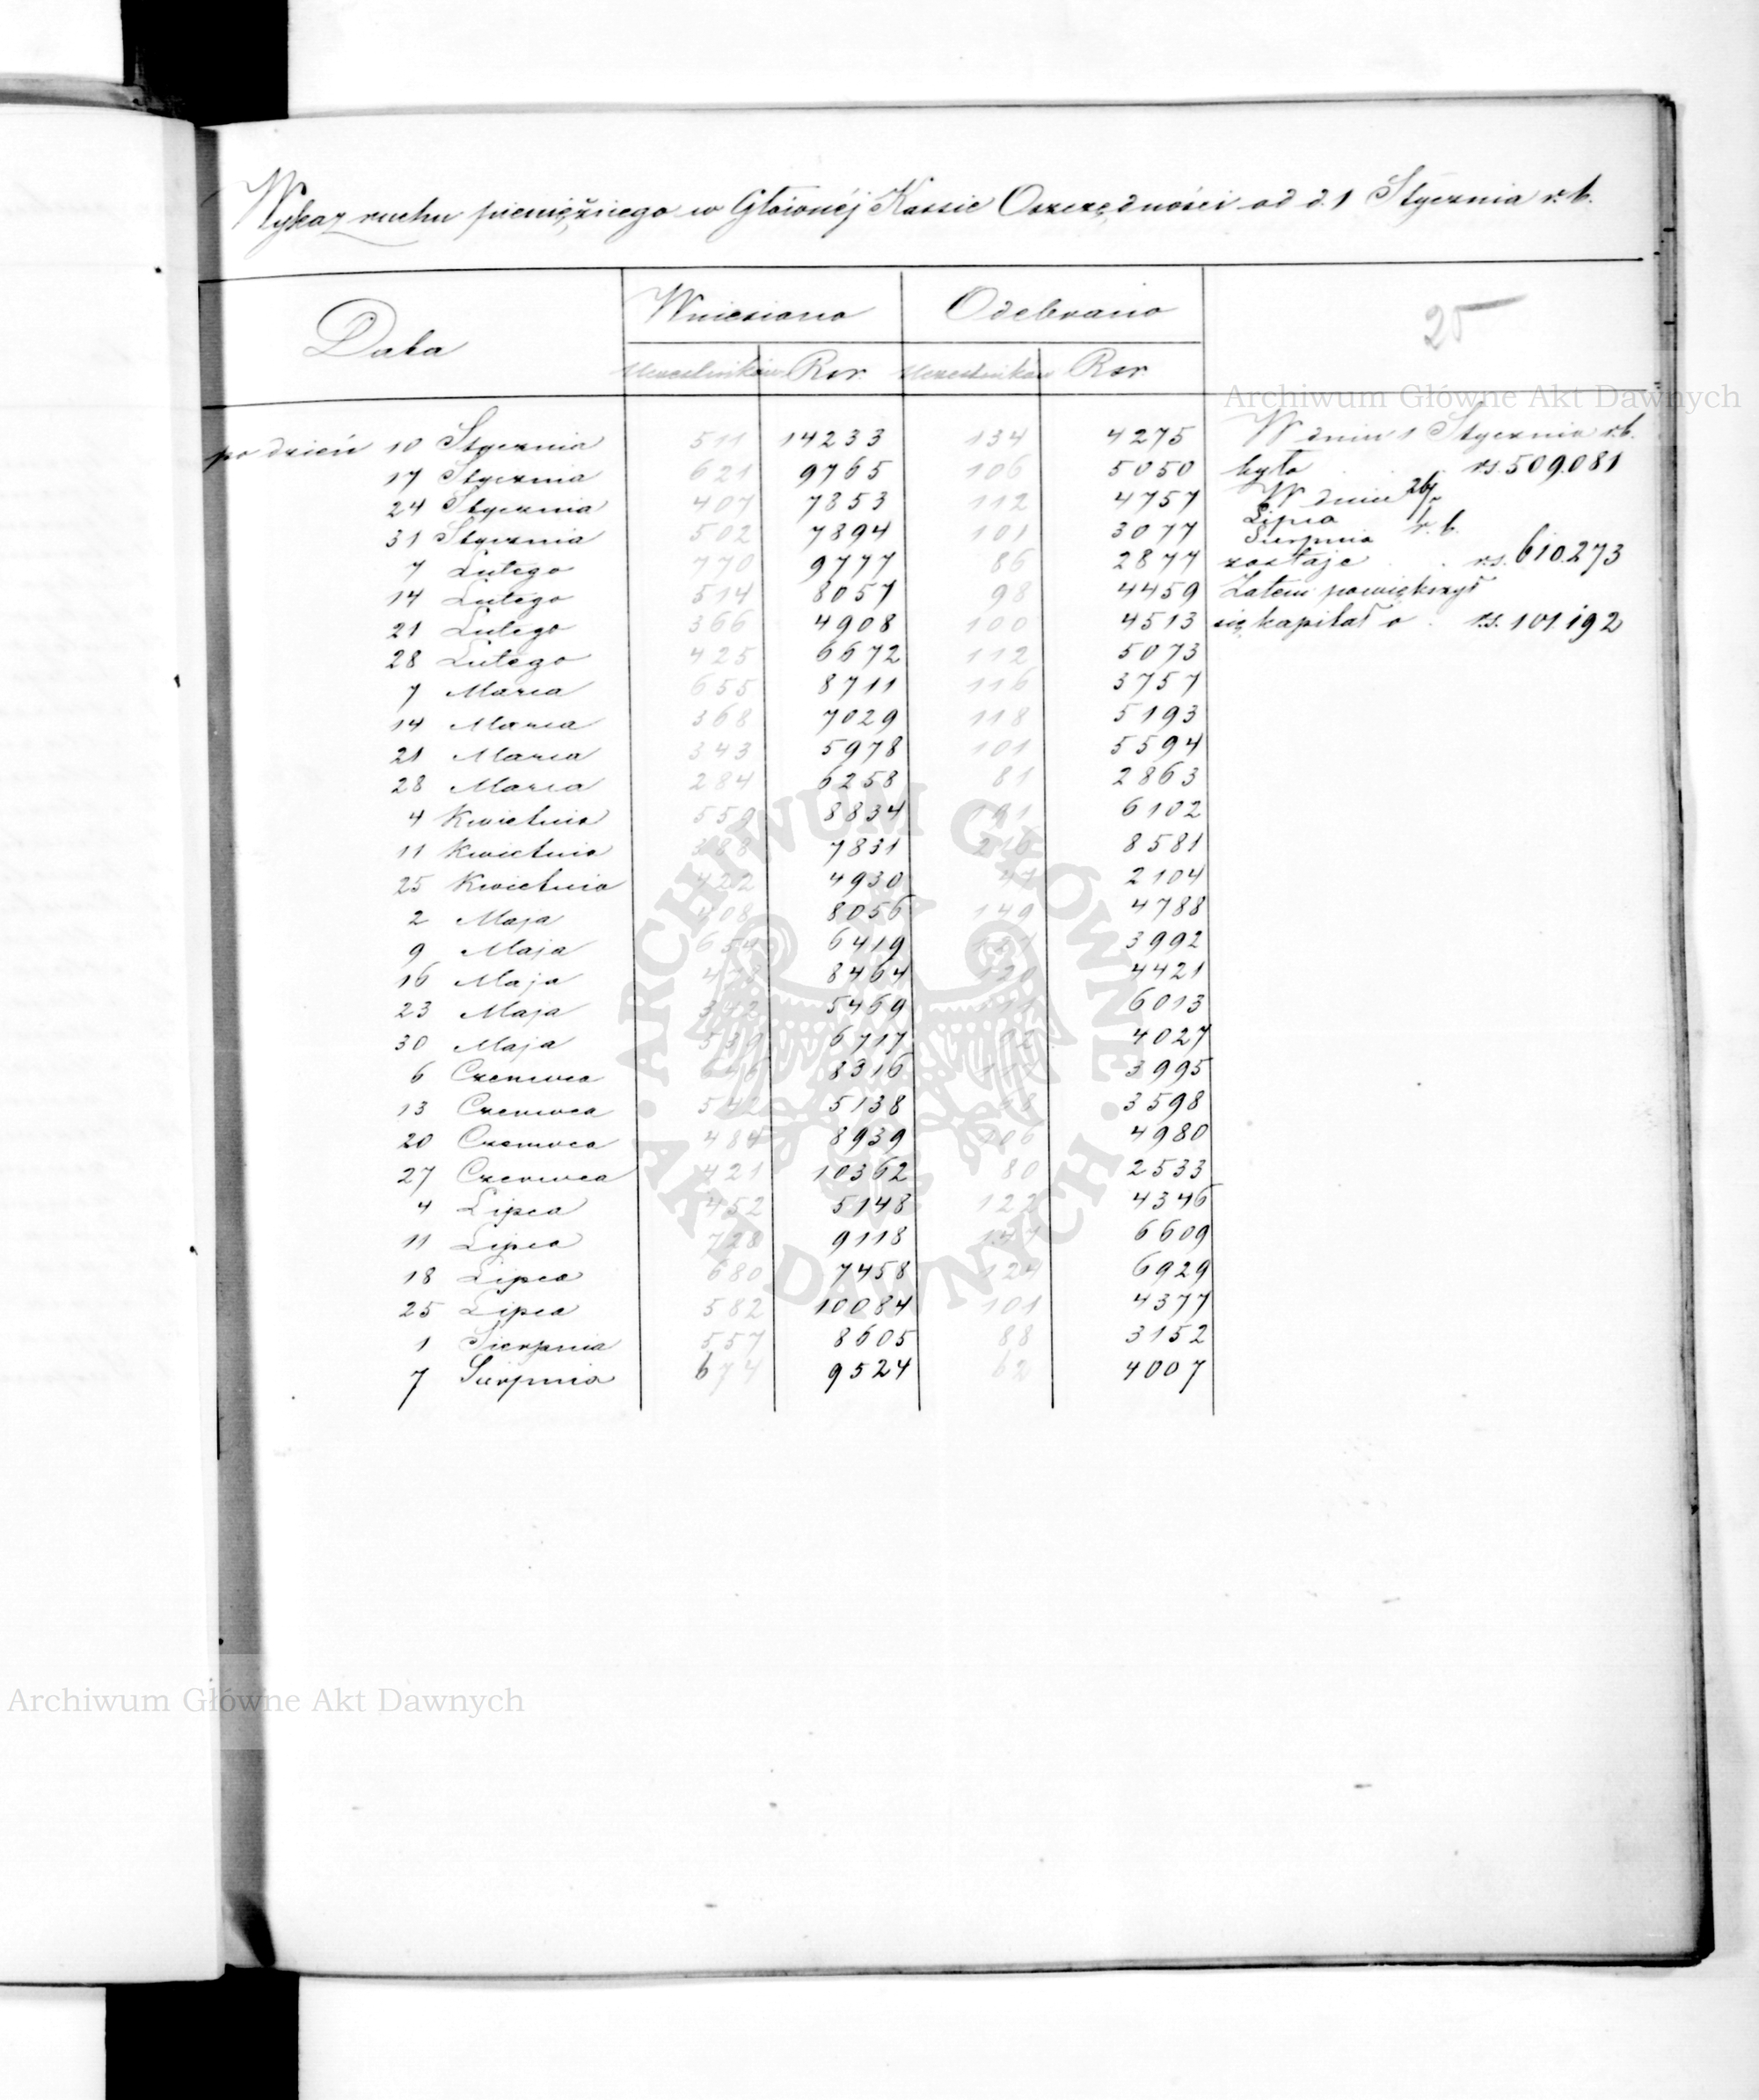 Wykaz ruchu pieniężnego w Głównéj Kassie Oszczędności od d. 1 Stycznia r.b.
Data Wniesiono Odebrano 25
Uczestników Rsr. Uczestników Rsr.
Archiwum Główne Akt Dawnych
po dzień 10 Stycznia 511 14233 134 4275 W dniu 1 Stycznia r.b.
17 Stycznia 621 9765 106 5050 było rs. 509.081
24 Stycznia 407 7853 112 4757 W dniu 26/7
31 Stycznia 502 7894 101 3077 Lipca Sierpnia r.b.
7 Lutego 770 9777 86 2877 zostaje rs. 610.273
14 Lutego 514 8057 98 4459 Zatem powiększył
21 Lutego 366 4908 100 4513 się kapitał o rs. 101.192
28 Lutego 425 6672 112 5073
7 Marca 655 8711 116 3757
14 Marca 368 7029 118 5193
21 Marca 343 5978 101 5594
28 Marca 284 6258 81 2863
4 Kwietnia 559 8834 191 6102
11 Kwietnia 388 7831 216 8581
25 Kwietnia 422 4930 47 2104
2 Maja 408 8056 149 4788
9 Maja 6419 3992
16 Maja 8464 120 4421
23 Maja 342 5469 111 6013
30 Maja 6717 4027
6 Czerwca 646 8316 3995
13 Czerwca 542 5138 3598
20 Czerwca 484 8939 106 4980
27 Czerwca 421 10362 80 2533
4 Lipca 452 5148 122 4346
11 Lipca 728 9118 147 6609
18 Lipca 680 7458 124 6929
25 Lipca 582 10084 101 4377
1 Sierpnia 557 8605 88 3152
7 Sierpnia 674 9524 62 4007
ARCHIWUM GŁÓWNE · AKT DAWNYCH ·
Archiwum Główne Akt Dawnych